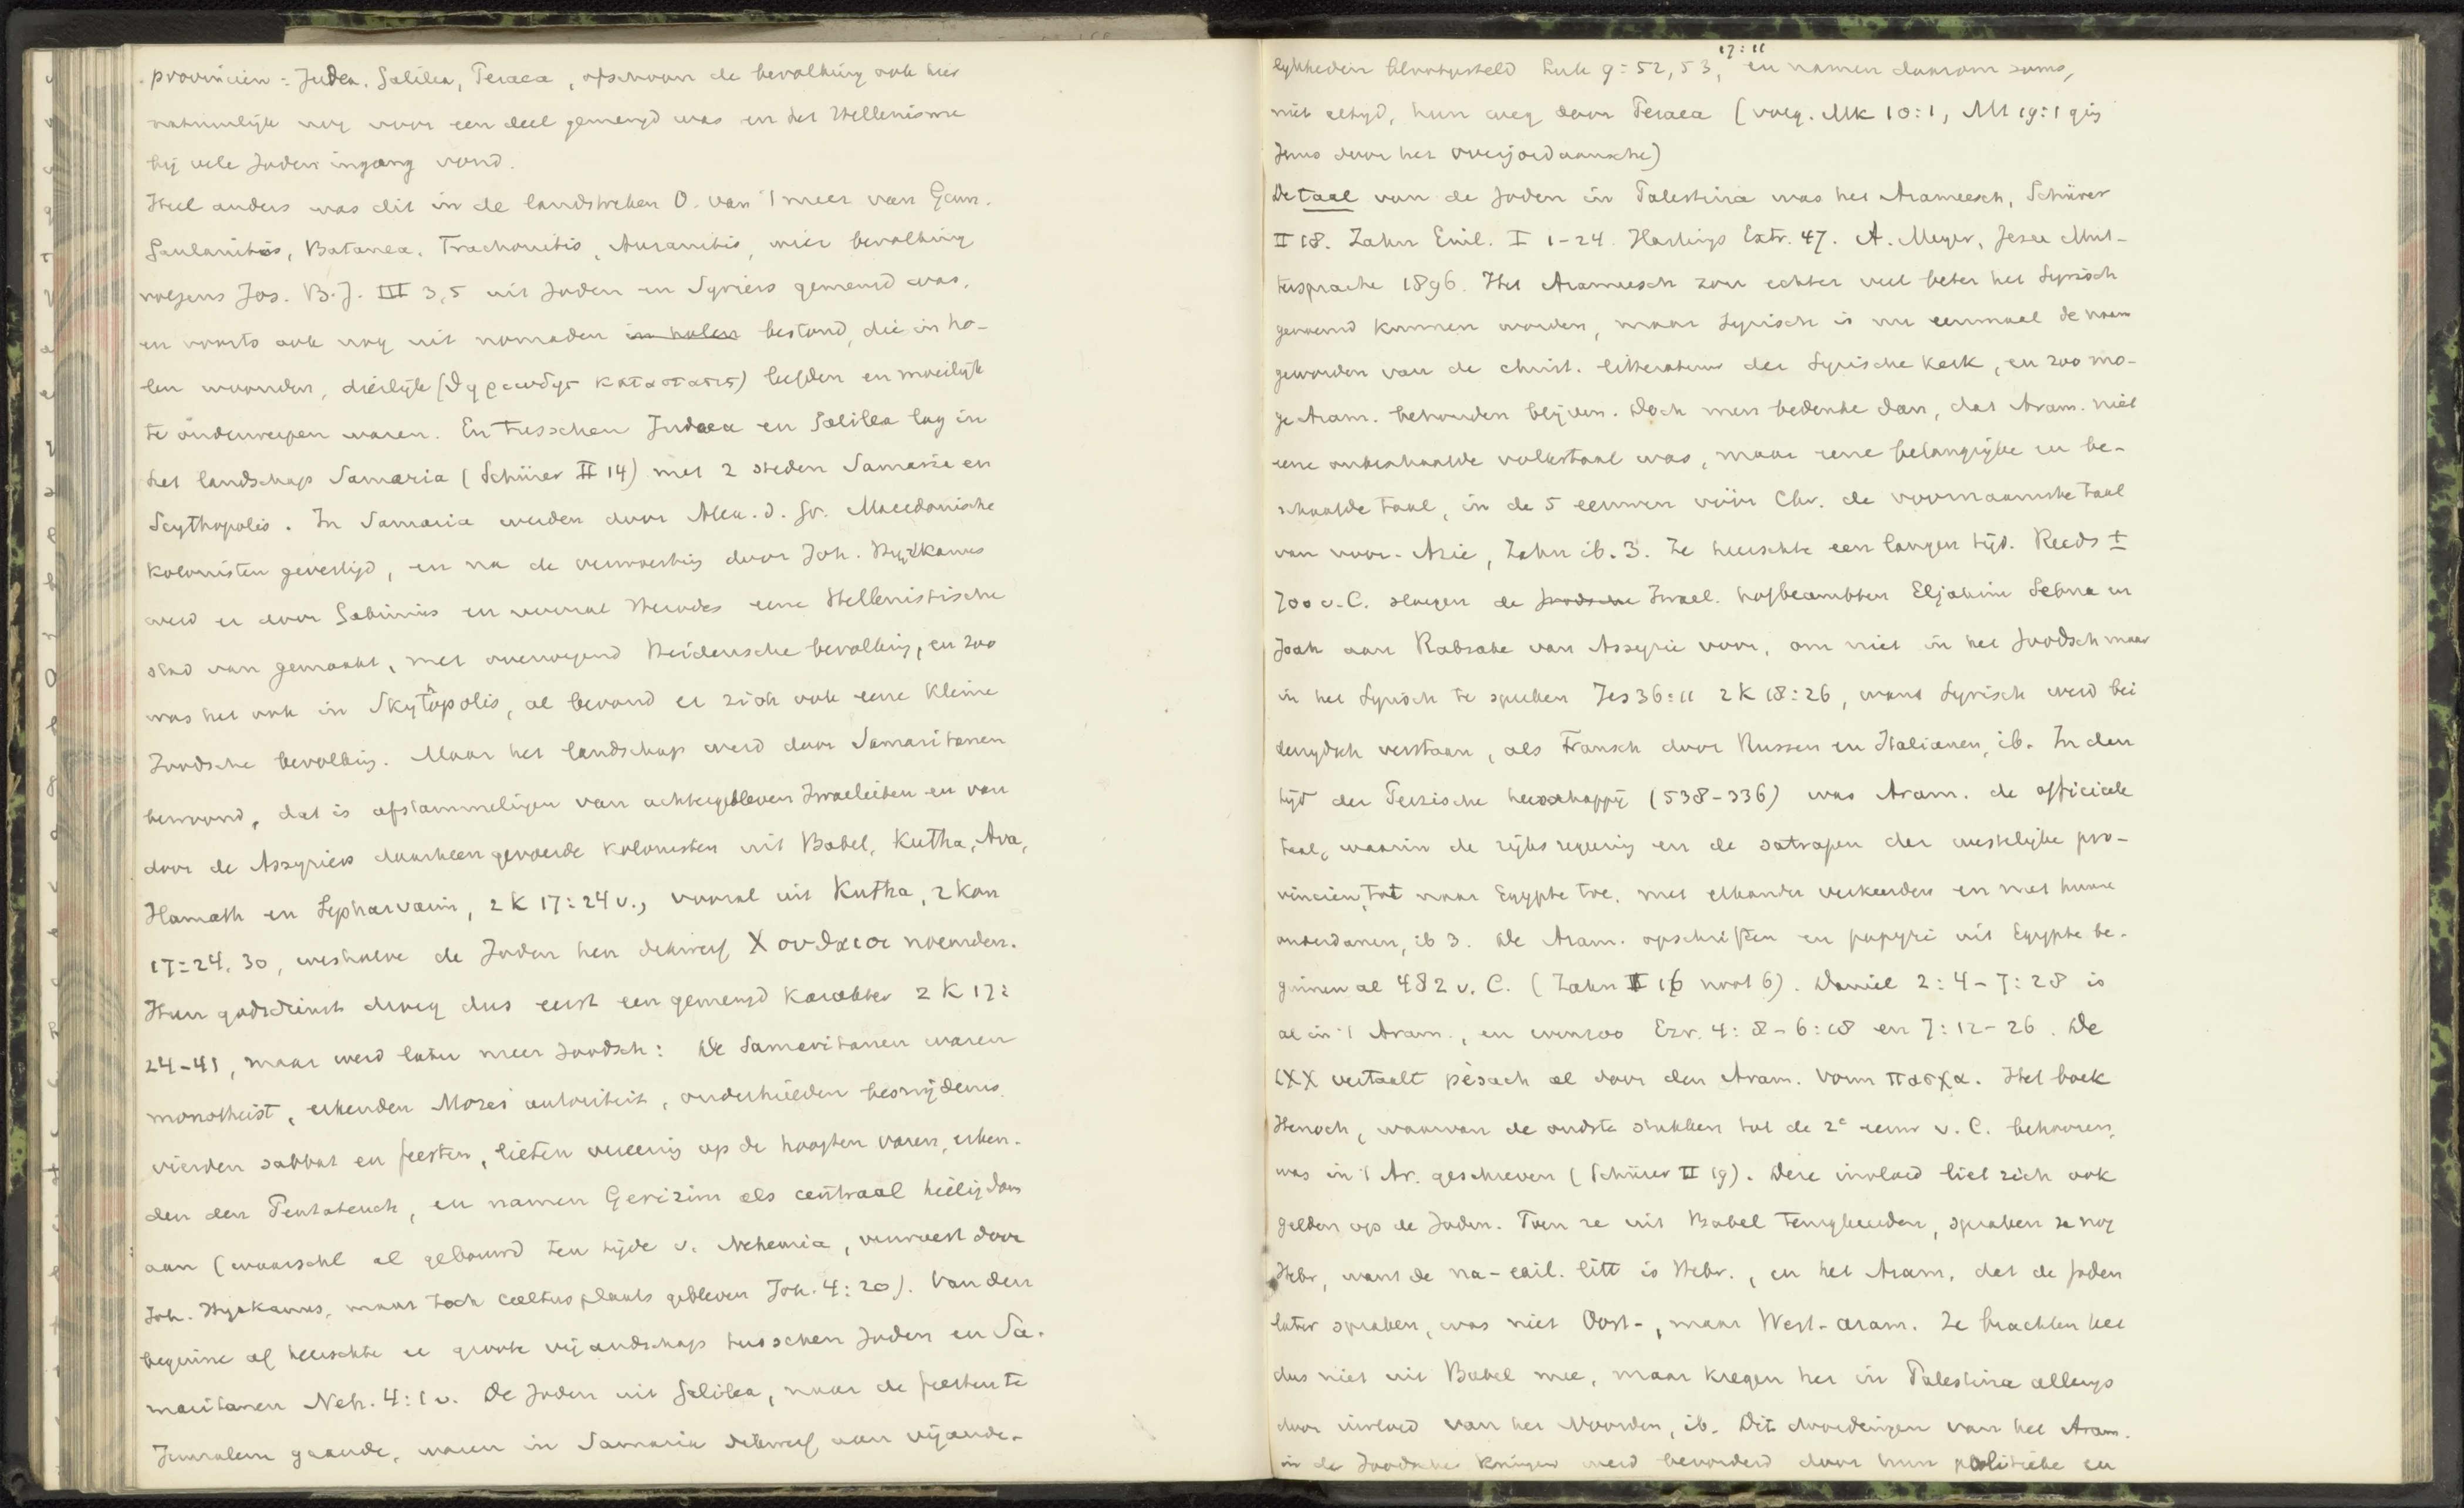 provinciën: Judea. Galilea, Peraea, ofschoon de bevolking ook hier
natuurlijk nog voor een deel gemengd was en het Hellenisme
bij vele Joden ingang vond.
Heel anders was dit in de landstreken O. van 't meer van Gen.
Gaulanitis, Batanea, Trachonitis, Auranitis, wier bevolking
volgens Jos. B.J. III 3,5 uit Joden en Syriers gemengd was,
en voorts ook nog uit nomaden in holen bestond, die in ho-
len woonden, dierlijk (θηριωδης καταστασις) leefden en moeilijk
te onderwerpen waren. En tusschen Judaea en Galilea lag in
het landschap Samaria (Schürer II 14) met 2 steden Samaria en
Scythopolis. In Samaria werden door Alex. d. Gr. Macedonische
kolonisten gevestigd, en na de verwoesting door Joh. Hyrkanus
werd er door Gabinius en vooral Herodes eene Hellenistische
stad van gemaakt, met overwegend Heidensche bevolking, en zoo
was het ook in Skythopolis, al bevond er zich ook eene kleine
Joodsche bevolking. Maar het landschap werd door Samaritanen
bewoond, dat is afstammelingen van achtergebleven Israelieten en van
door de Assyriers daarheen gevoerde kolonisten uit Babel, Kutha, Ava,
Hamath en Sepharvaim, 2 K 17:24 v., vooral uit Kutha, 2 Kon
17:24. 30, weshalve de Joden hen dikwerf Χουθαιοι noemden.
Hun godsdienst droeg dus eerst een gemengd karakter 2 K 17:
24-41, maar werd later meer Joodsch: De Samaritanen waren
monotheist, erkenden Mozes autoriteit, onderhielden besnijdenis,
vierden sabbat en feesten, lieten vereering op de hoogten varen, erken-
den den Pentateuch, en namen Gerizim als centraal heiligdom
aan (waarschl al gebouwd ten tijde v. Nehemia, verwoest door
Joh. Hyrkanus, maar toch cultusplaats gebleven Joh. 4:20). Van den
beginne af heerschte er groote vijandschap tusschen Joden en Sa-
maritanen Neh. 4:1 v. De Joden uit Galilea, naar de feesten te
Jeruzalem gaande, waren in Samaria dikwerf aan vijande-
lykheden blootgesteld Luk 9:52, 53, 17:11 en namen daarom soms,
niet altyd, hun weg door Peraea (volg. Mk 10:1, Mt 19:1 ging
Jezus door het overjordaansche)
De taal van de Joden in Palestina was het Arameesch, Schürer
II 18. Zahn Einl. I 1-24. Hastings Extr. 47. A. Meyer, Jesu Mut-
tersprache 1896. Het Arameesch zou echter veel beter het Syrisch
genoemd kunnen worden, maar Syrisch is nu eenmaal de naam
geworden van de christ. litteratuur der Syrische kerk, en zoo mo-
ge Aram. behouden blijven. Doch men bedenke dan, dat Aram. niet
eene onbeschaafde volkstaal was, maar eene belangrijke en be-
schaafde taal, in de 5 eeuwen vóór Chr. de voornaamste taal
van voor-Azie, Zahn ib. 3. Ze heerschte een langen tijd. Reeds ±
700 v.C. sloegen de Joodsche Israel. hofbeambten Eljakim Sebna en
Joah aan Rabsake van Assyrie voor, om niet in het Joodsch maar
in het Syrisch te spreken Jes 36:11 2 K 18:26, want Syrisch werd bei
derzydsch verstaan, als Fransch door Russen en Italianen, ib. In den
tijd der Perzische heerschappij (538-336) was Aram. de officieele
taal, waarin de rijksregering en de satrapen der westelijke pro-
vincien, tot naar Egypte toe, met elkander verkeerden en met hunne
onderdanen, ib 3. De Aram. opschriften en papyri uit Egypte be-
ginnen al 482 v. C. (Zahn I 16 noot 6). Daniel 2:4-7:28 is
al in 't Aram., en evenzoo Ezr. 4:8-6:18 en 7:12-26. De
LXX vertaalt pèsach al door den Aram. vorm πασχα. Het boek
Henoch, waarvan de oudste stukken tot de 2e eeuw v. C. behooren,
was in 't Ar. geschreven (Schürer II 19). Deze invloed liet zich ook
gelden op de Joden. Toen ze uit Babel terugkeerden, spraken ze nog
Hebr, want de na-exil. litt is Hebr., en het Aram, dat de Joden
later spraken, was niet Oost-, maar West-aram. Ze brachten het
dus niet uit Babel mee, maar kregen het in Palestina allengs
door invloed van het Noorden, ib. Dit doordringen van het Aram.
in de Joodsche kringen werd bevorderd door hun politieke en